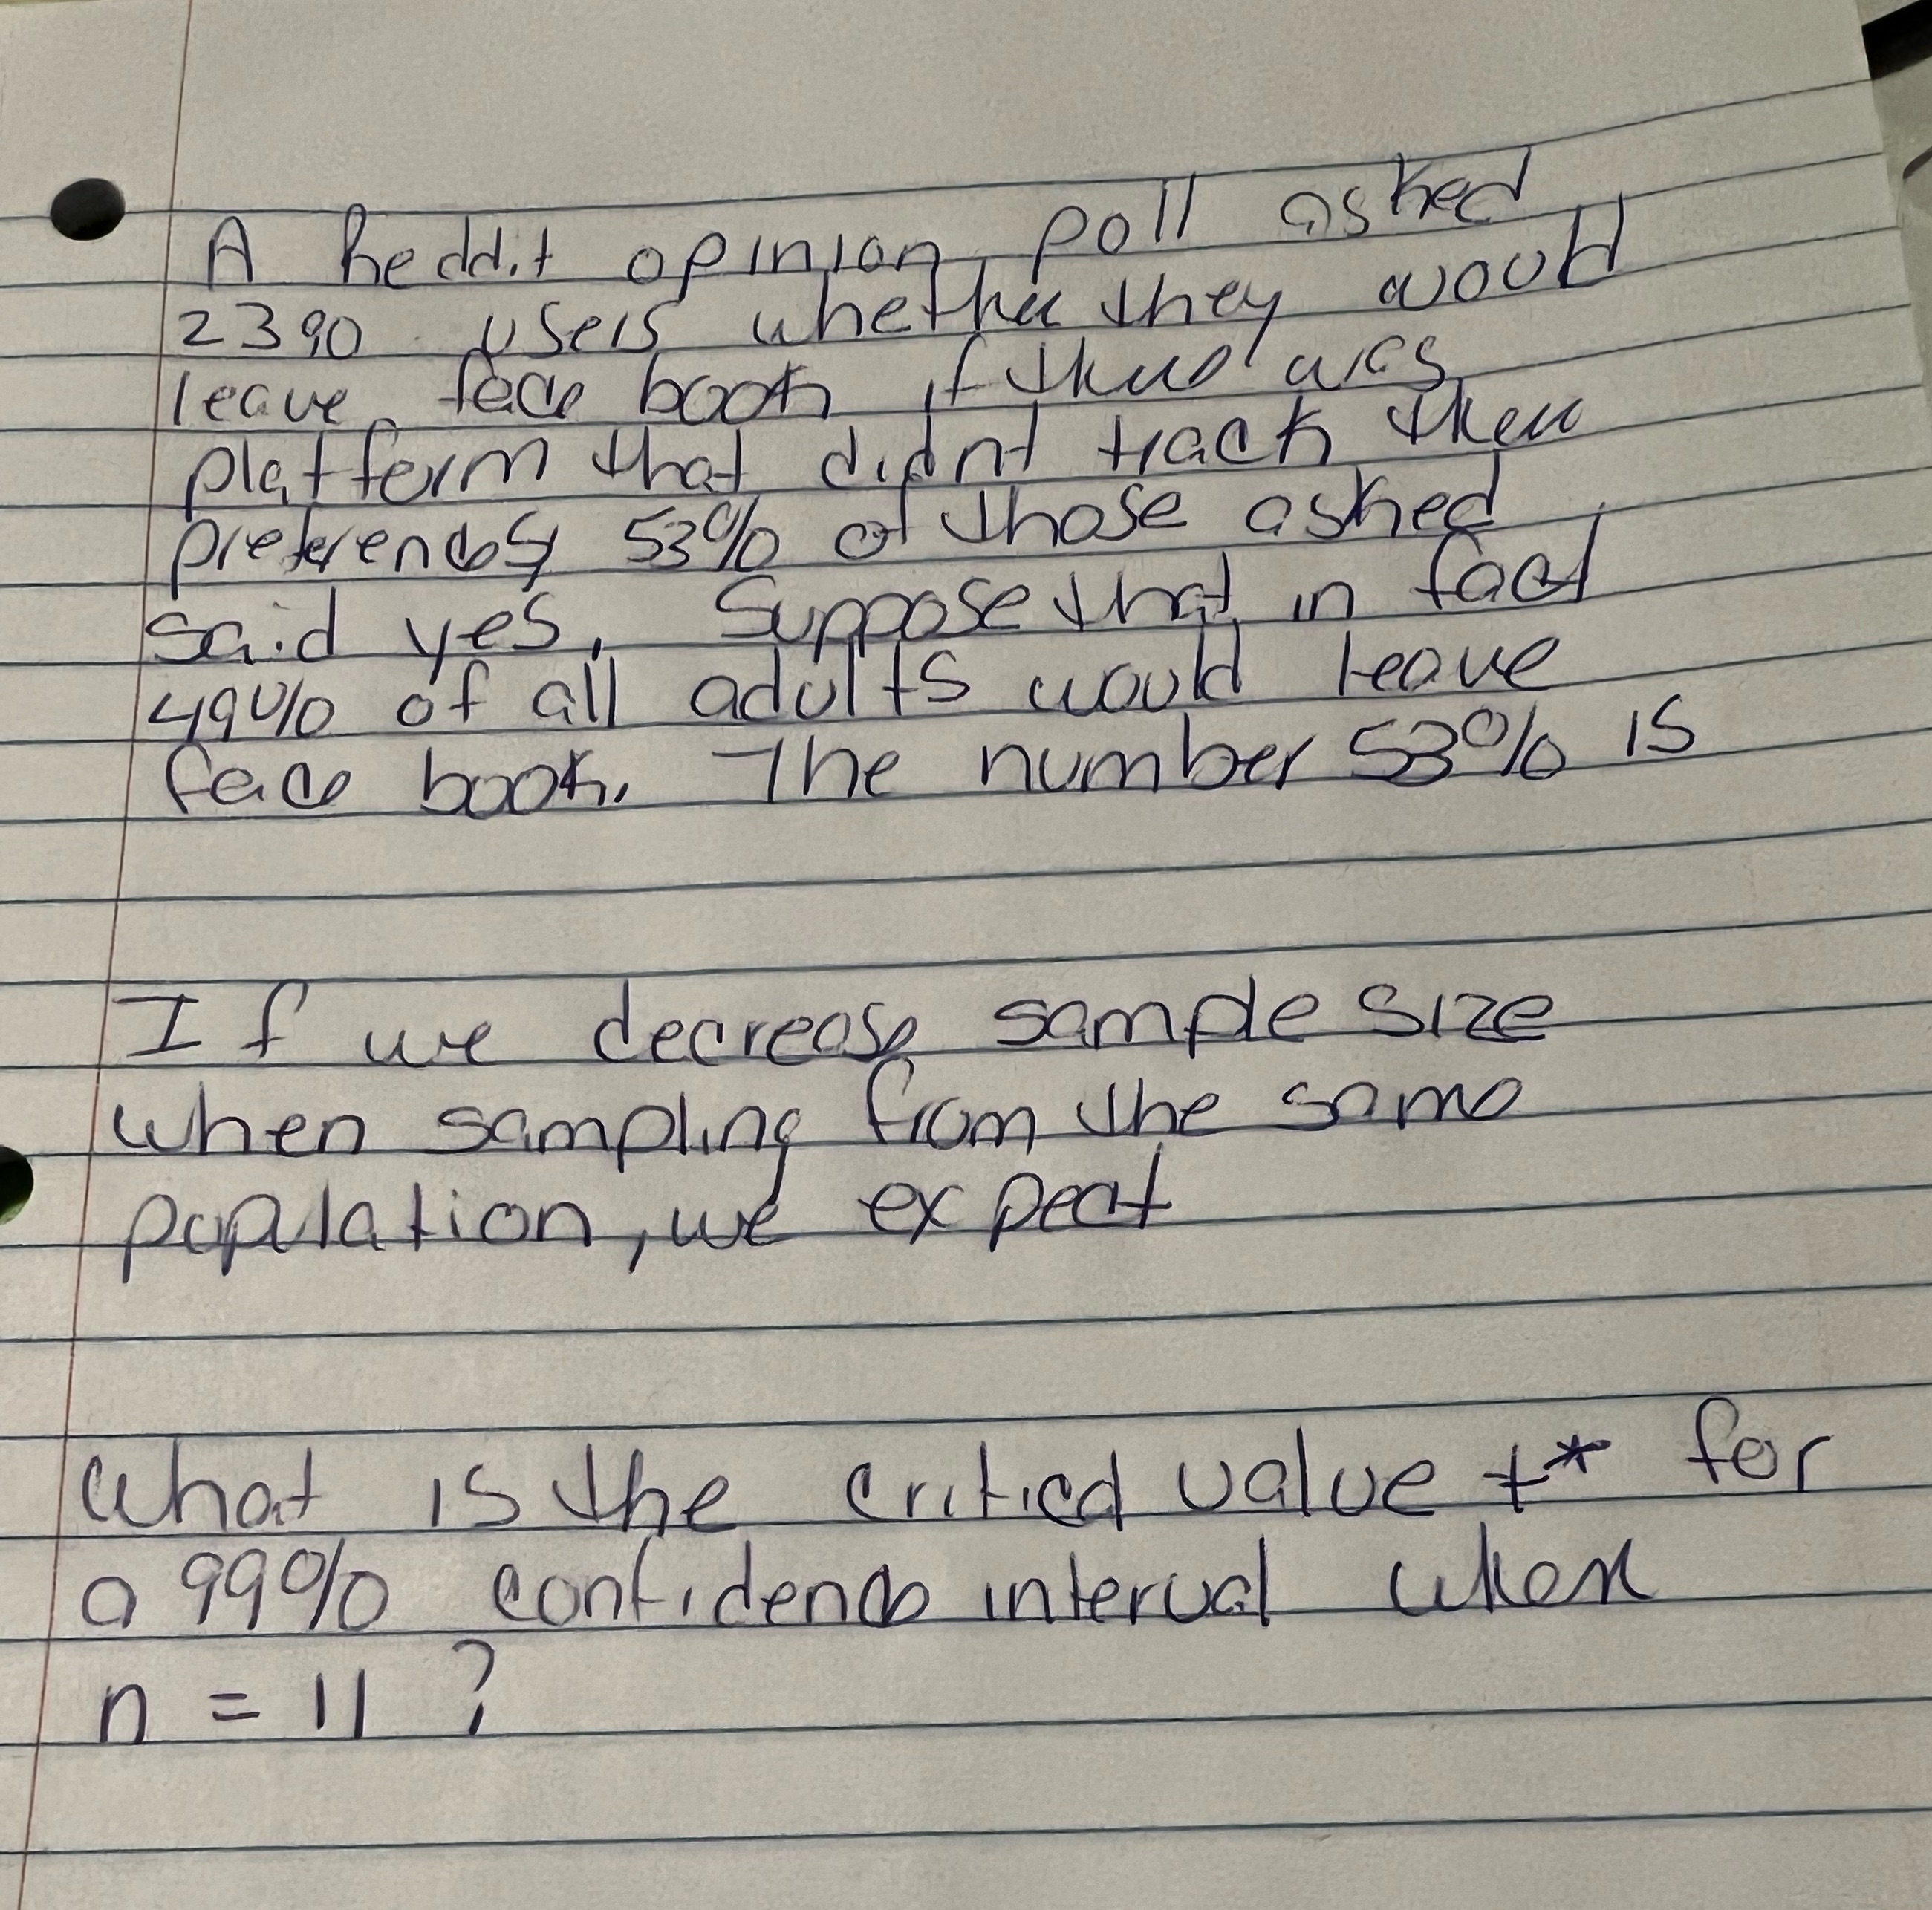 A Reddit opinion poll asked
2390 users whether they would
leave face book if there was
platform that didnt track their
preferences, 53% of those asked
said yes. Suppose that in fact
49% of all adults would leave
face book. The number 53% is
If we decrease sample size
when sampling from the same
population, we expect
What is the critical value t* for
a 99% confidence interval when
n = 11 ?